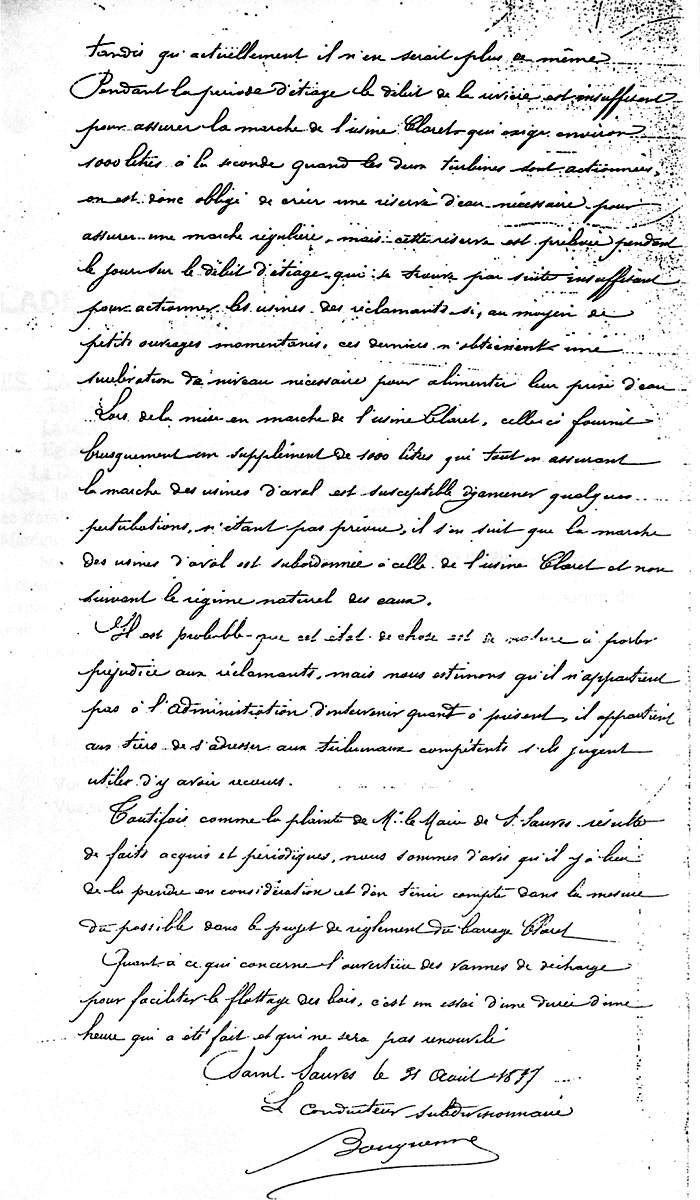 tandis qu'actuellement il n'en serait plus de même
Pendant la periode d'étiage le débit de la rivière est insuffisant
pour assurer la marche de l'usine Claret qui exige environ
1000 litres à la seconde quand les deux turbines sont actionnées,
on est donc obligé de créer une réserve d'eau nécessaire pour
assurer une marche régulière, mais cette réserve est prélevée pendant
le jour sur le débit d'étiage qui se trouve par suite insuffisant
pour actionner les usines des réclamants si, au moyen de
petits ouvrages momentanés, ces derniers n'obtiennent une
surélévation de niveau nécessaire pour alimenter leur prise d'eau
Lors de la mise en marche de l'usine Claret, celle-ci fournit
brusquement un supplément de 1000 litres qui tout en assurant
la marche des usines d'aval est susceptible d'y amener quelques
perturbations, n'étant pas prévue, il s'en suit que la marche
des usines d'aval est subordonnée à celle de l'usine Claret et non
suivant le régime naturel des eaux.
Il est probable que cet état de chose est de nature à porter
préjudice aux réclamants, mais nous estimons qu'il n'appartient
pas à l'administration d'intervenir quant à présent, il appartient
aux tiers de s'adresser aux tribunaux compétents s'ils jugent
utiles d'y avoir recours.
Toutefois comme la plainte de Mr le Maire de St Sauves résulte
de faits acquis et périodiques, nous sommes d'avis qu'il y a lieu
de la prendre en considération et d'en tenir compte dans la mesure
du possible dans le projet de règlement du barrage Claret
Quant à ce qui concerne l'ouverture des vannes de décharge
pour faciliter le flottage des bois, c'est un essai d'une durée d'une
heure qui a été fait et qui ne sera pas renouvelé
Saint Sauves le 31 Août 1897
Le conducteur subdivisionnaire